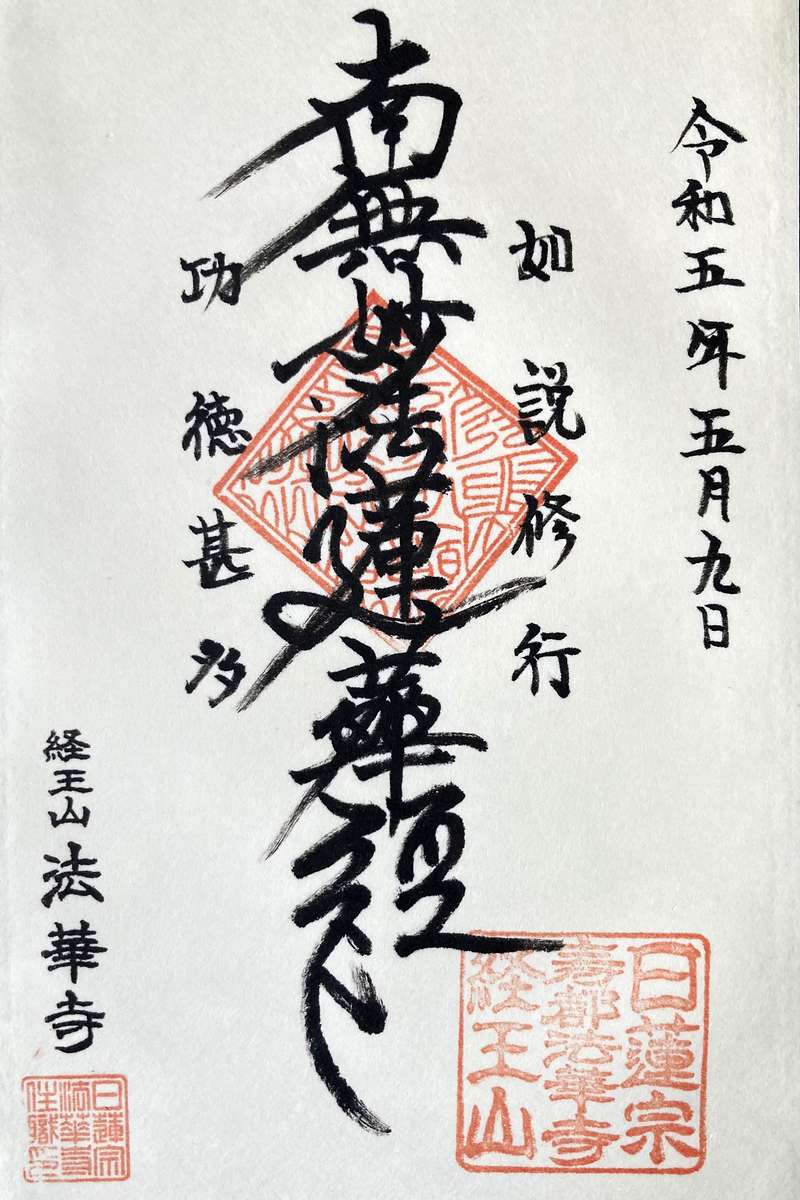 令和五年五月九日
如説修行
南無妙法蓮華経
功徳甚多
経王山 法華寺
日蓮宗
壽都法華寺
経王山
日蓮宗
法華寺
住職印